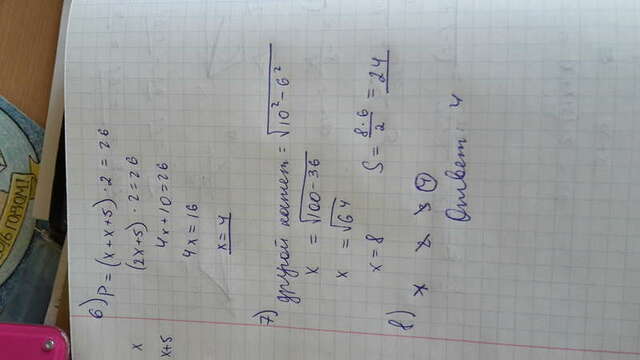 16 ГОРОМ!
6) P = (x + x + 5) · 2 = 26
x
(2x + 5) · 2 = 26
x+5
4x + 10 = 26
4x = 16
x = 4
7)
другой катет = √10² - 6²
x = √100 - 36
x = √64
x = 8 S = 8·6/2 = 24
8)
1 2 3 4
Ответ: 4